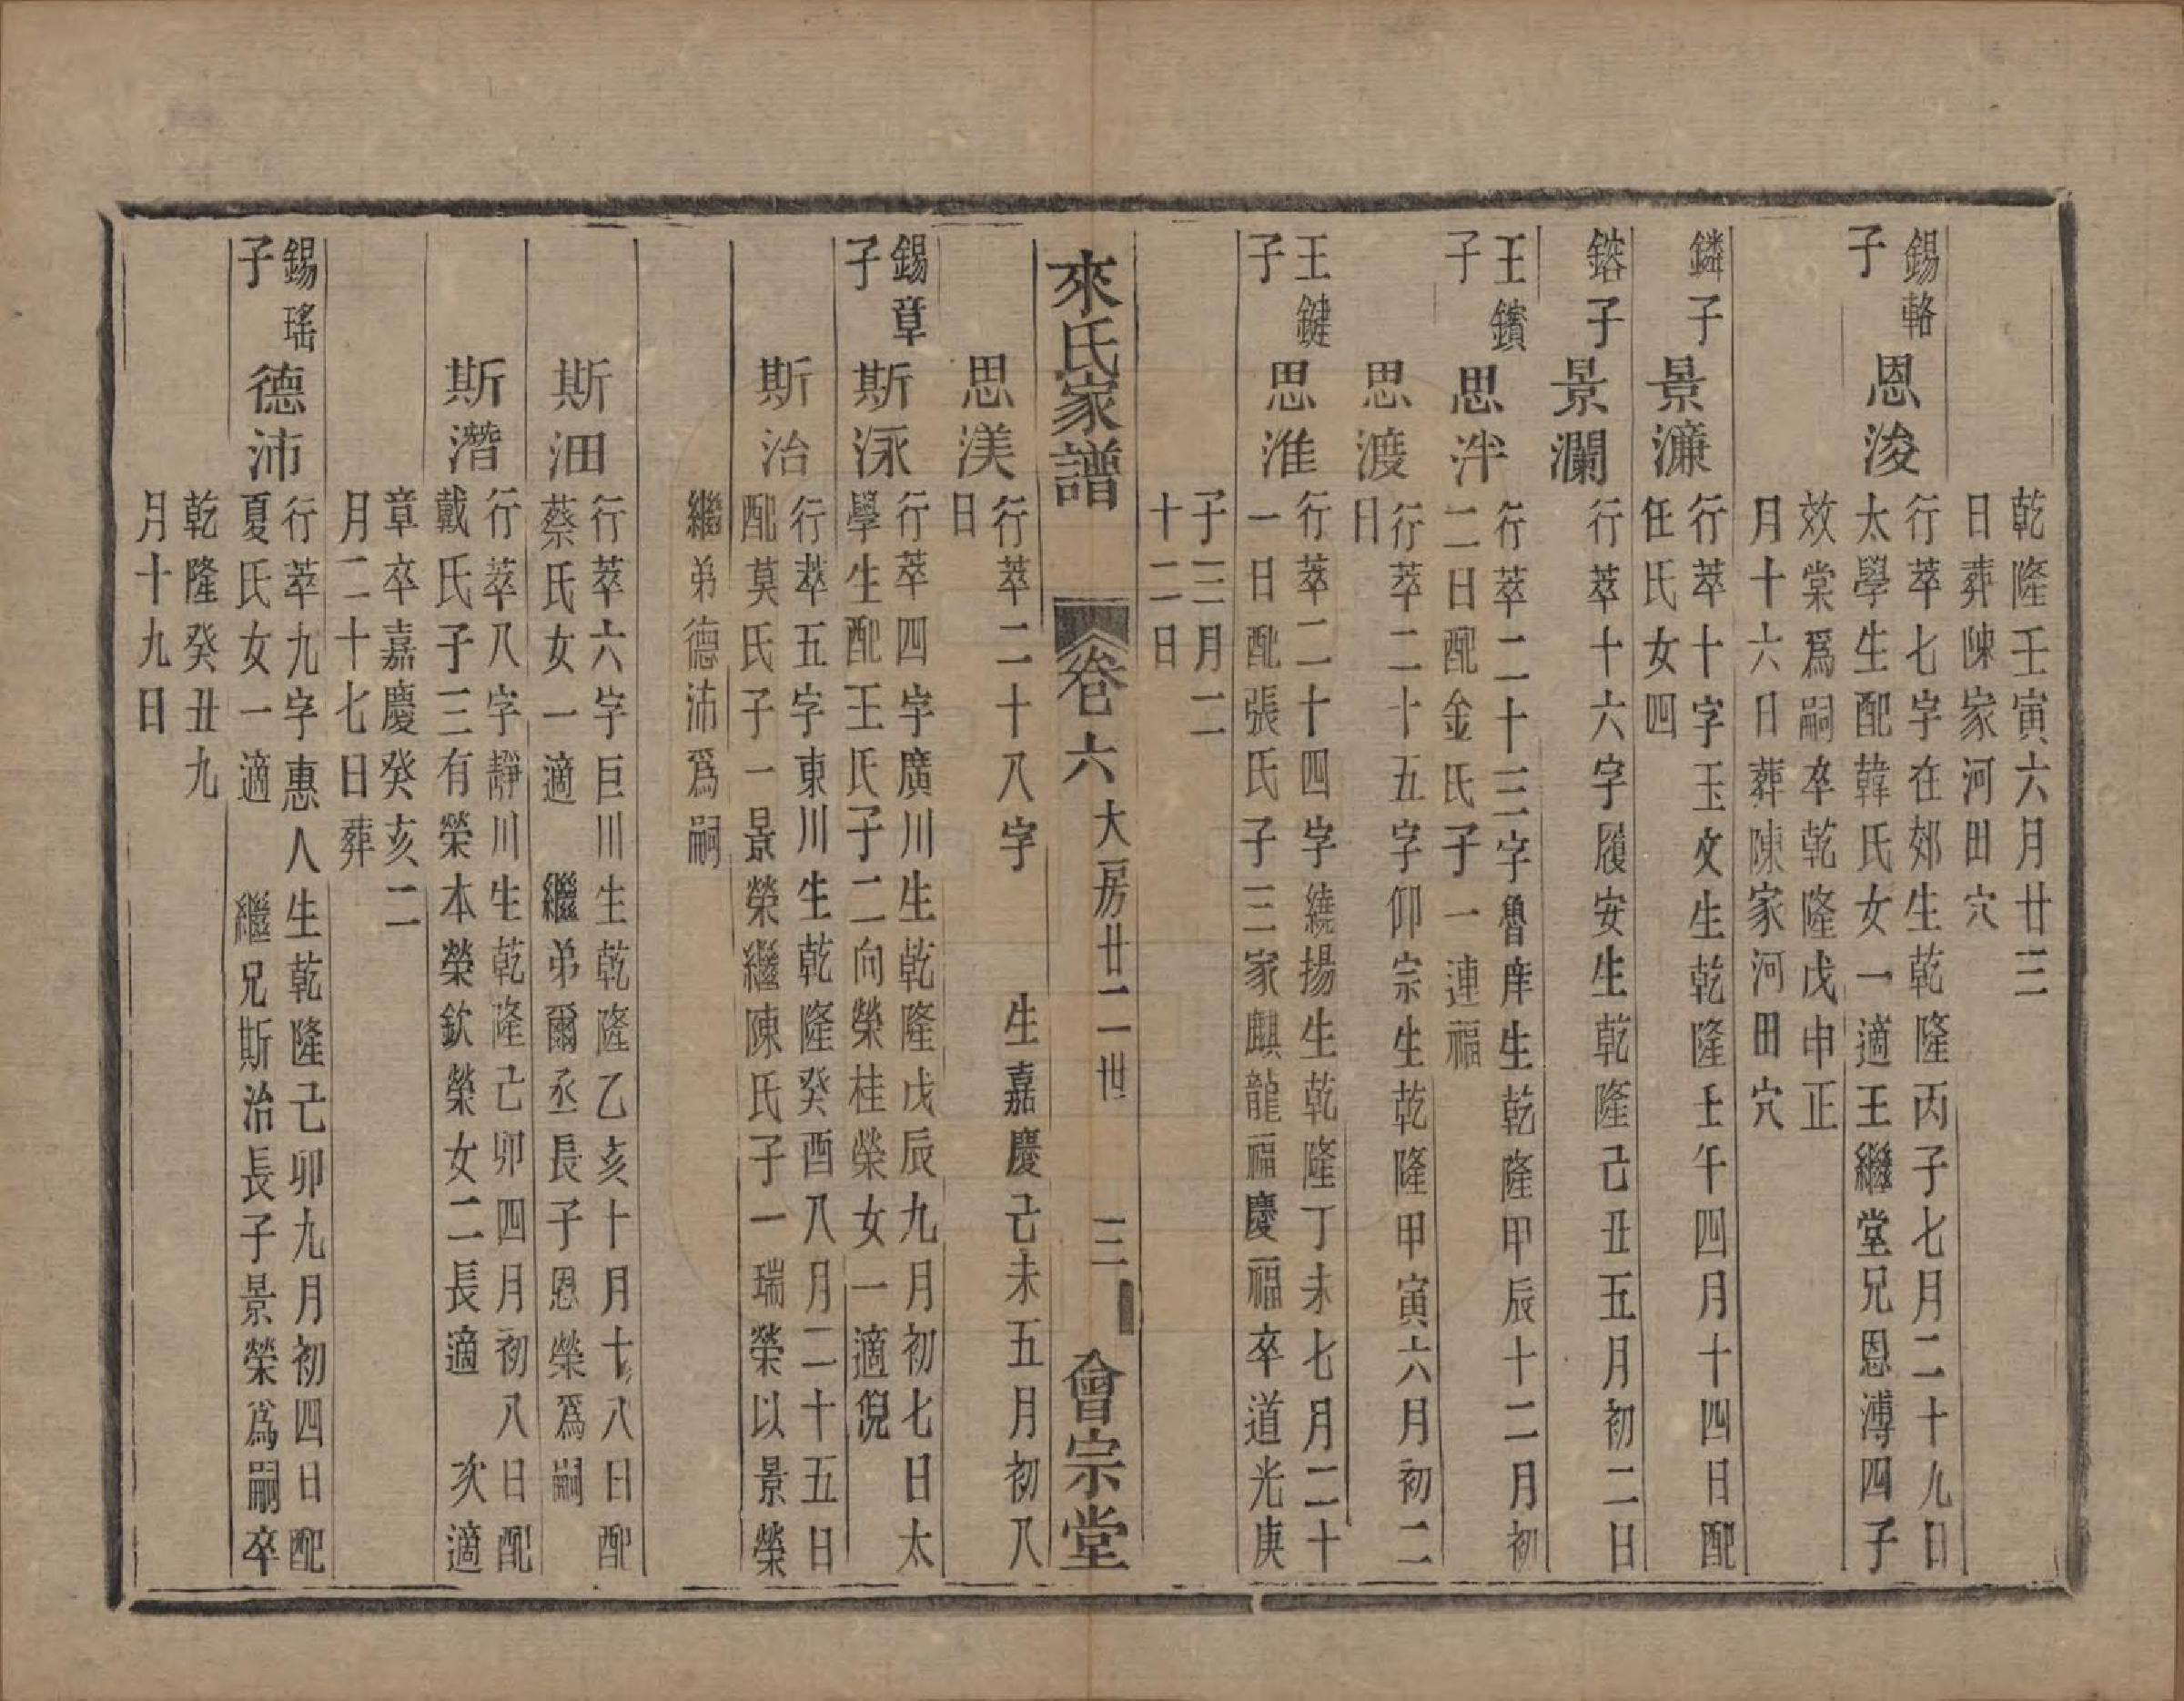 乾隆壬寅六月廿三
日葬陳家河田穴
錫輅
子
恩浚
行萃七字在郊生乾隆丙子七月二十九日
太學生配韓氏女一適王繼堂兄恩溥四子
效棠爲嗣卒乾隆戊申正
月十六日葬陳家河田穴
鏻子
景濂
行萃十字玉文生乾隆壬午四月十四日配
任氏女四
鎔子
景瀾
行萃十六字履安生乾隆己丑五月初二日
王鑌
子
思泮
行萃二十三字魯庠生乾隆甲辰十二月初
二日配金氏子一連福
思渡
行萃二十五字仰宗生乾隆甲寅六月初二
日
王鍵
子
思淮
行萃二十四字繞揚生乾隆丁未七月二十
一日配張氏子三家麒龍福慶福卒道光庚
子三月二
十二日
來氏家譜
卷六
大房廿二世
三
會宗堂
思渼
行萃二十八字 生嘉慶己未五月初八
日
錫章
子
斯泳
行萃四字廣川生乾隆戊辰九月初七日太
學生配王氏子二向榮桂榮女一適倪
斯治
行萃五字東川生乾隆癸酉八月二十五日
配莫氏子一景榮繼陳氏子一瑞榮以景榮
繼弟德沛爲嗣
斯沺
行萃六字巨川生乾隆乙亥十月十八日配
蔡氏女一適 繼弟爾丞長子恩榮爲嗣
斯潛
行萃八字靜川生乾隆己卯四月初八日配
戴氏子三有榮本榮欽榮女二長適 次適
章卒嘉慶癸亥二
月二十七日葬
錫瑤
子
德沛
行萃九字惠人生乾隆己卯九月初四日配
夏氏女一適 繼兄斯治長子景榮爲嗣卒
乾隆癸丑九
月十九日